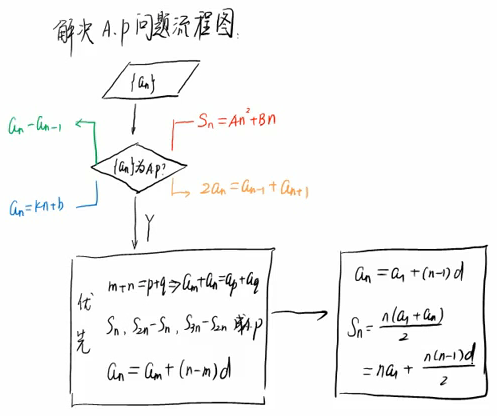 解决 A.p 问题流程图.
{aₙ}
aₙ-aₙ₋₁
Sₙ=An²+Bn
{aₙ}为A.p?
aₙ=kn+b
2aₙ=aₙ₋₁+aₙ₊₁
Y
优先
m+n=p+q⇒aₘ+aₙ=aₚ+a_q
Sₙ, S₂ₙ-Sₙ, S₃ₙ-S₂ₙ 成A.p
aₙ=aₘ+(n-m)d
aₙ=a₁+(n-1)d
Sₙ=n(a₁+aₙ)/2
=na₁+n(n-1)d/2